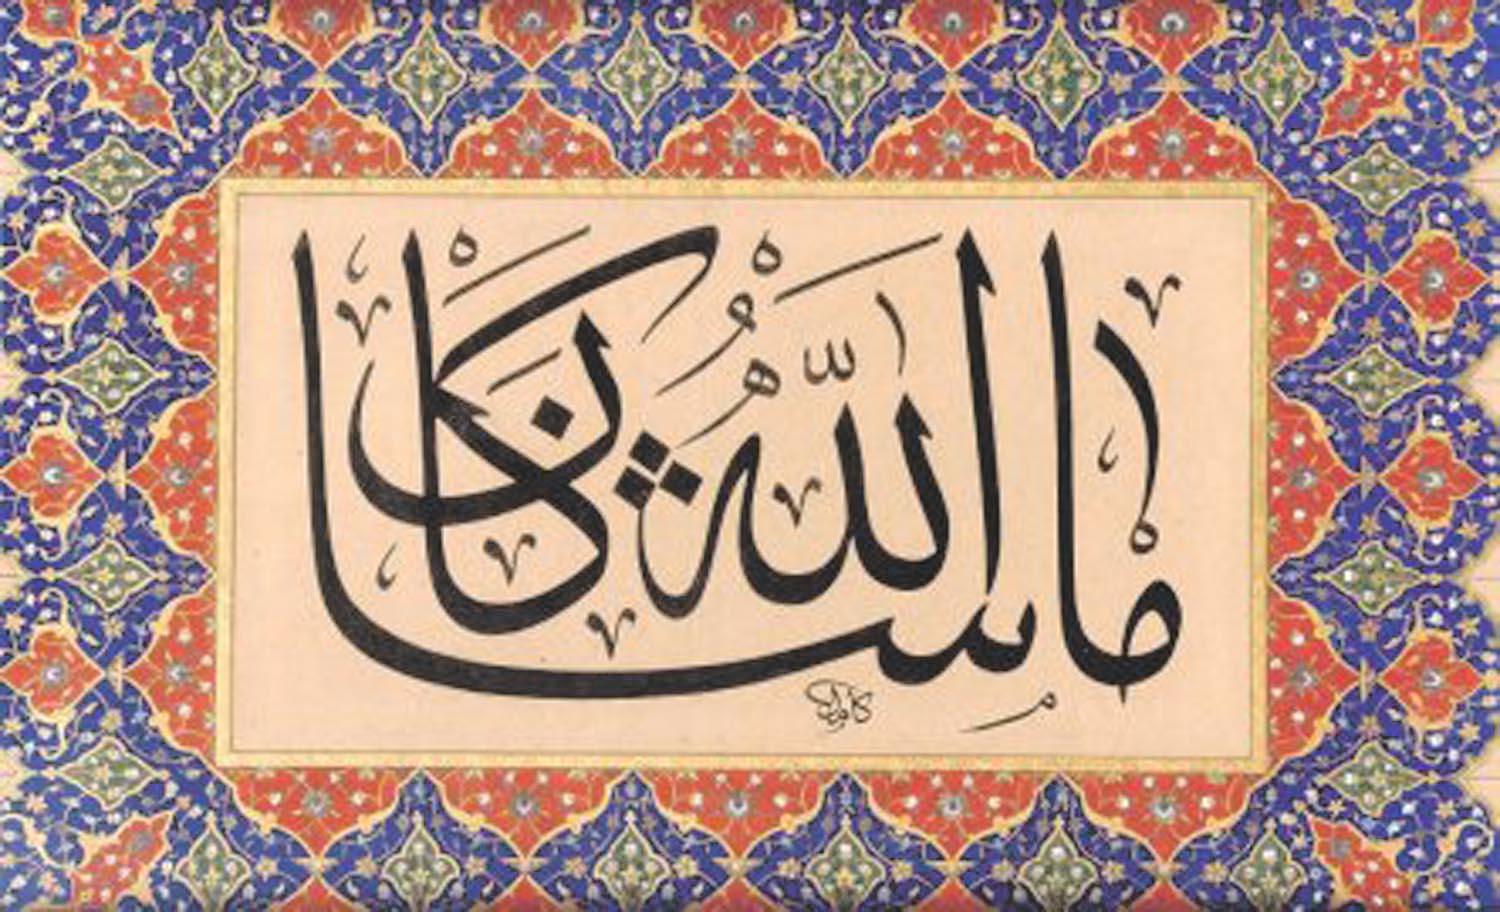 ما شاء الله كان